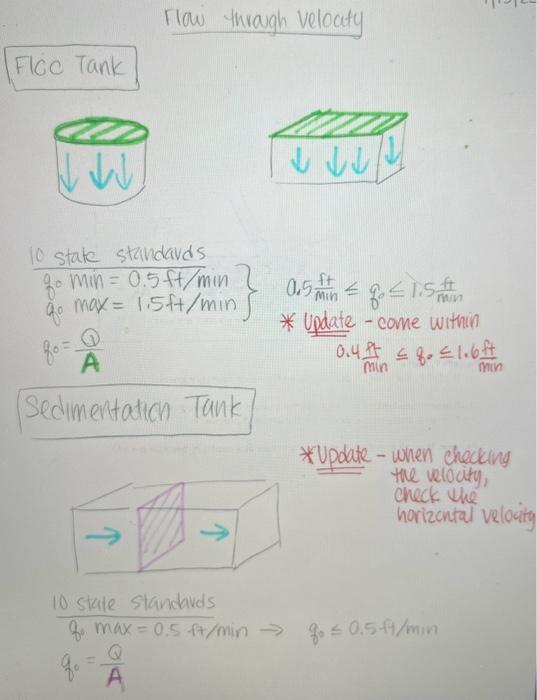 Flow through Velocity
Floc Tank
10 state standards
q₀ min = 0.5 ft/min
q₀ max = 1.5 ft/min
0.5 ft/min ≤ q₀ ≤ 1.5 ft/min
* Update - come within
0.4 ft/min ≤ q₀ ≤ 1.6 ft/min
q₀ = Q/A
Sedimentation Tank
* Update - when checking
the velocity,
check the
horizontal velocity
10 state standards
q₀ max = 0.5 ft/min → q₀ ≤ 0.5 ft/min
q₀ = Q/A